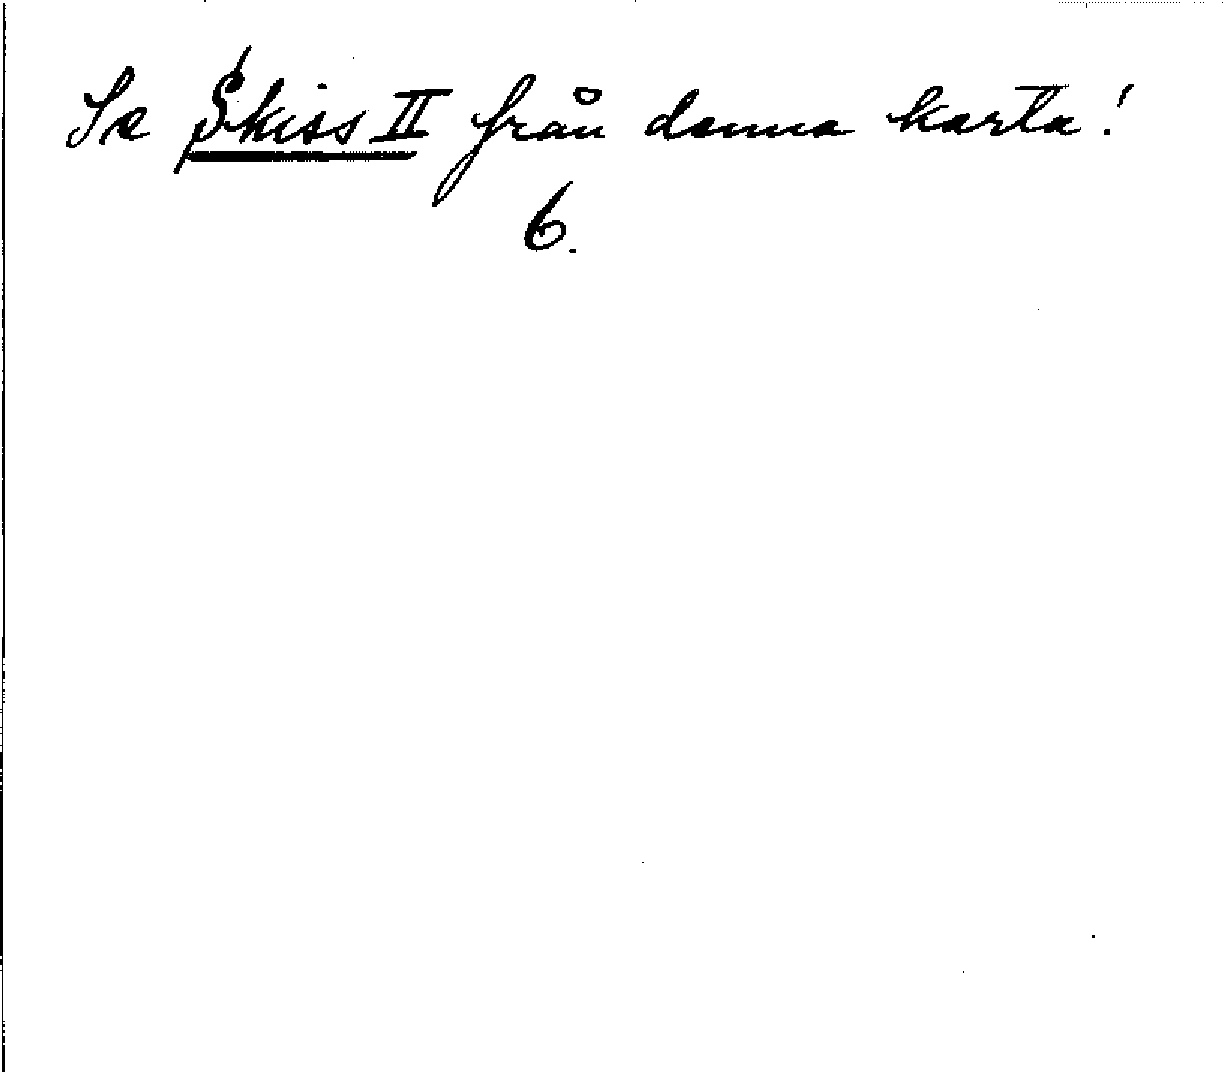 Se Skiss II från denna karta!
6.